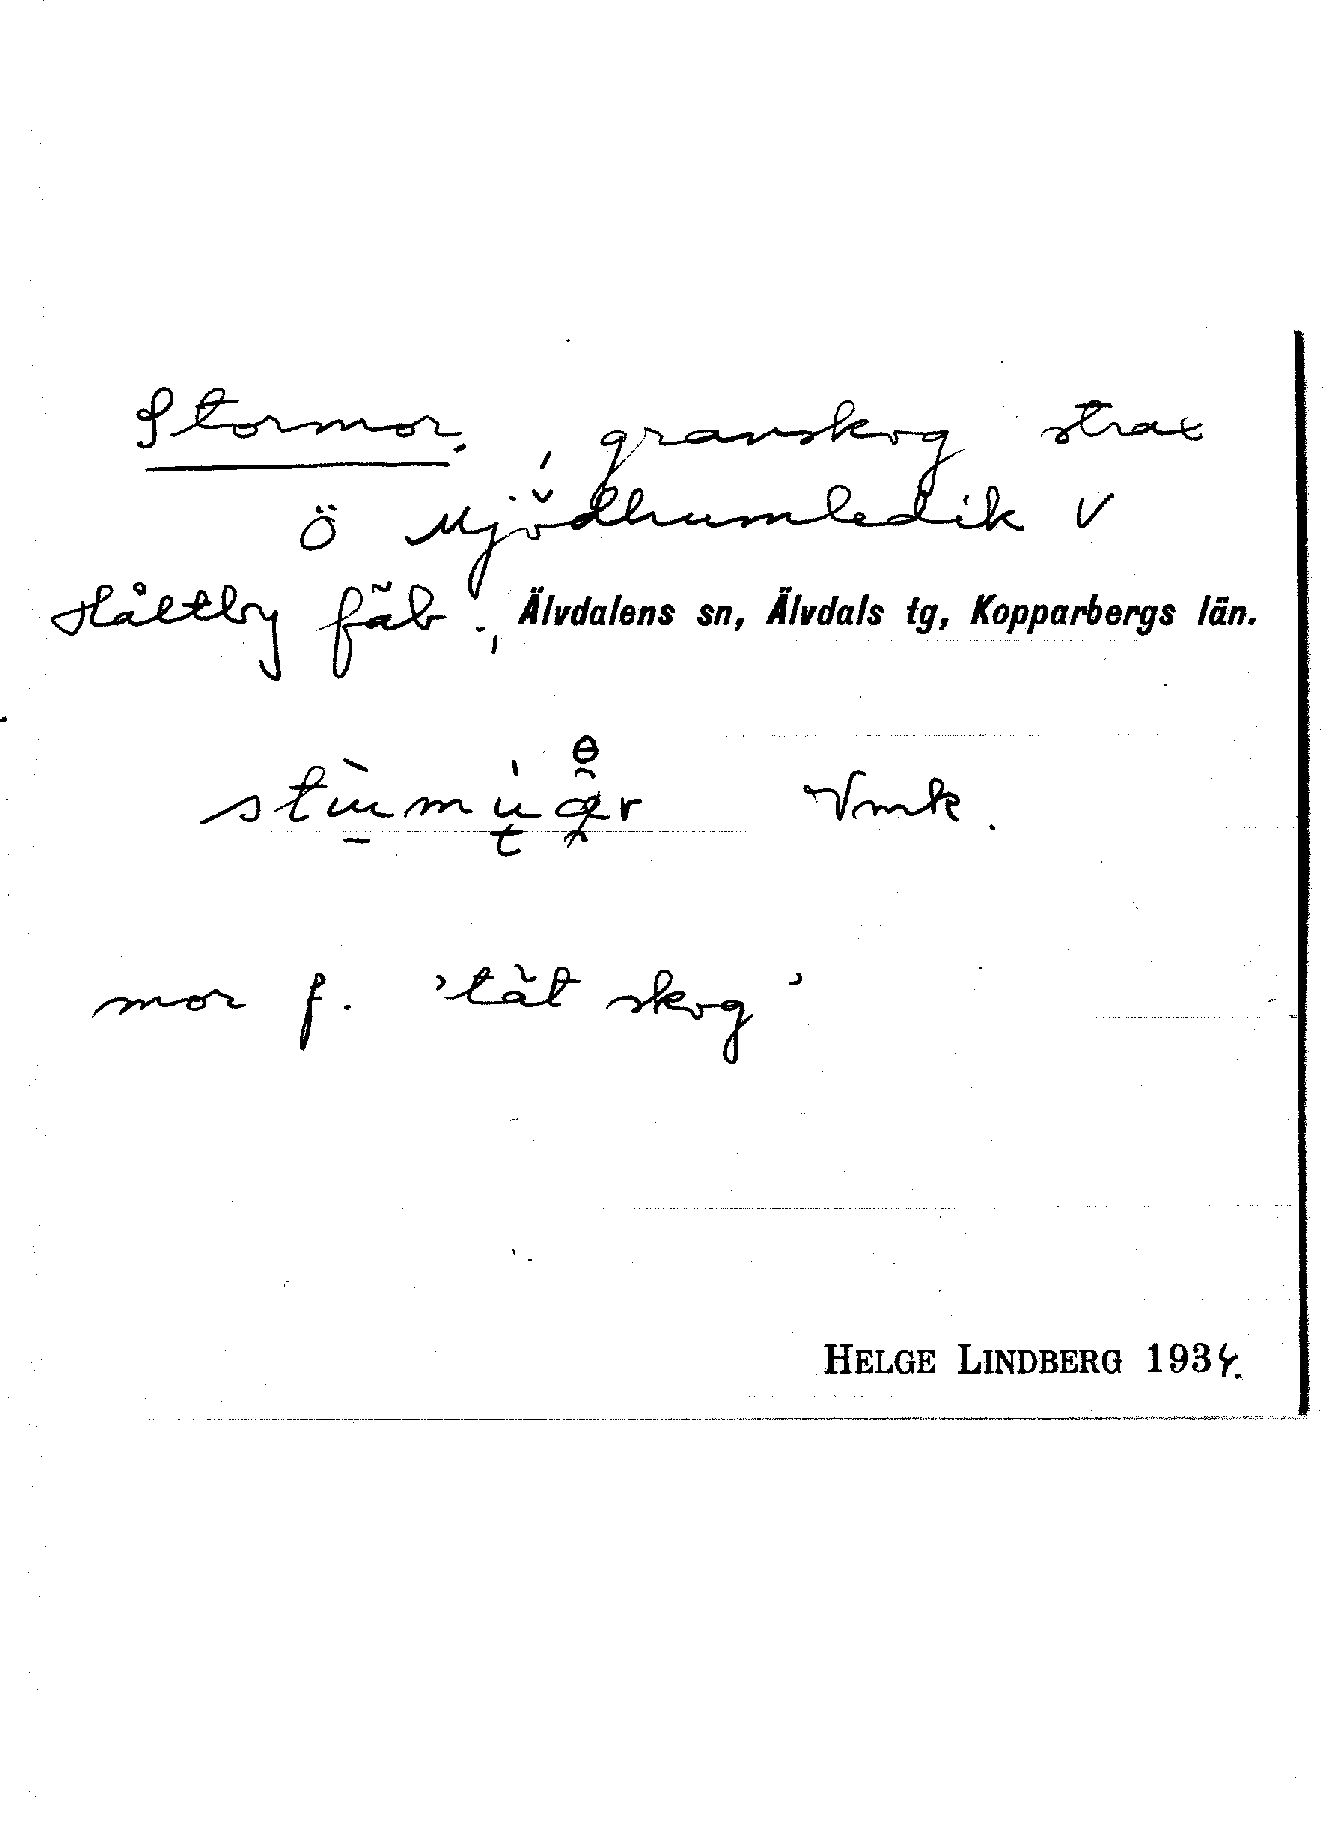 Stormor, granskog strax
Ö Mjödhumledik V
Håltby fäb., Älvdalens sn, Älvdals tg, Kopparbergs län.
Vmk.
mor f. 'tät skog'
HELGE LINDBERG 1934.